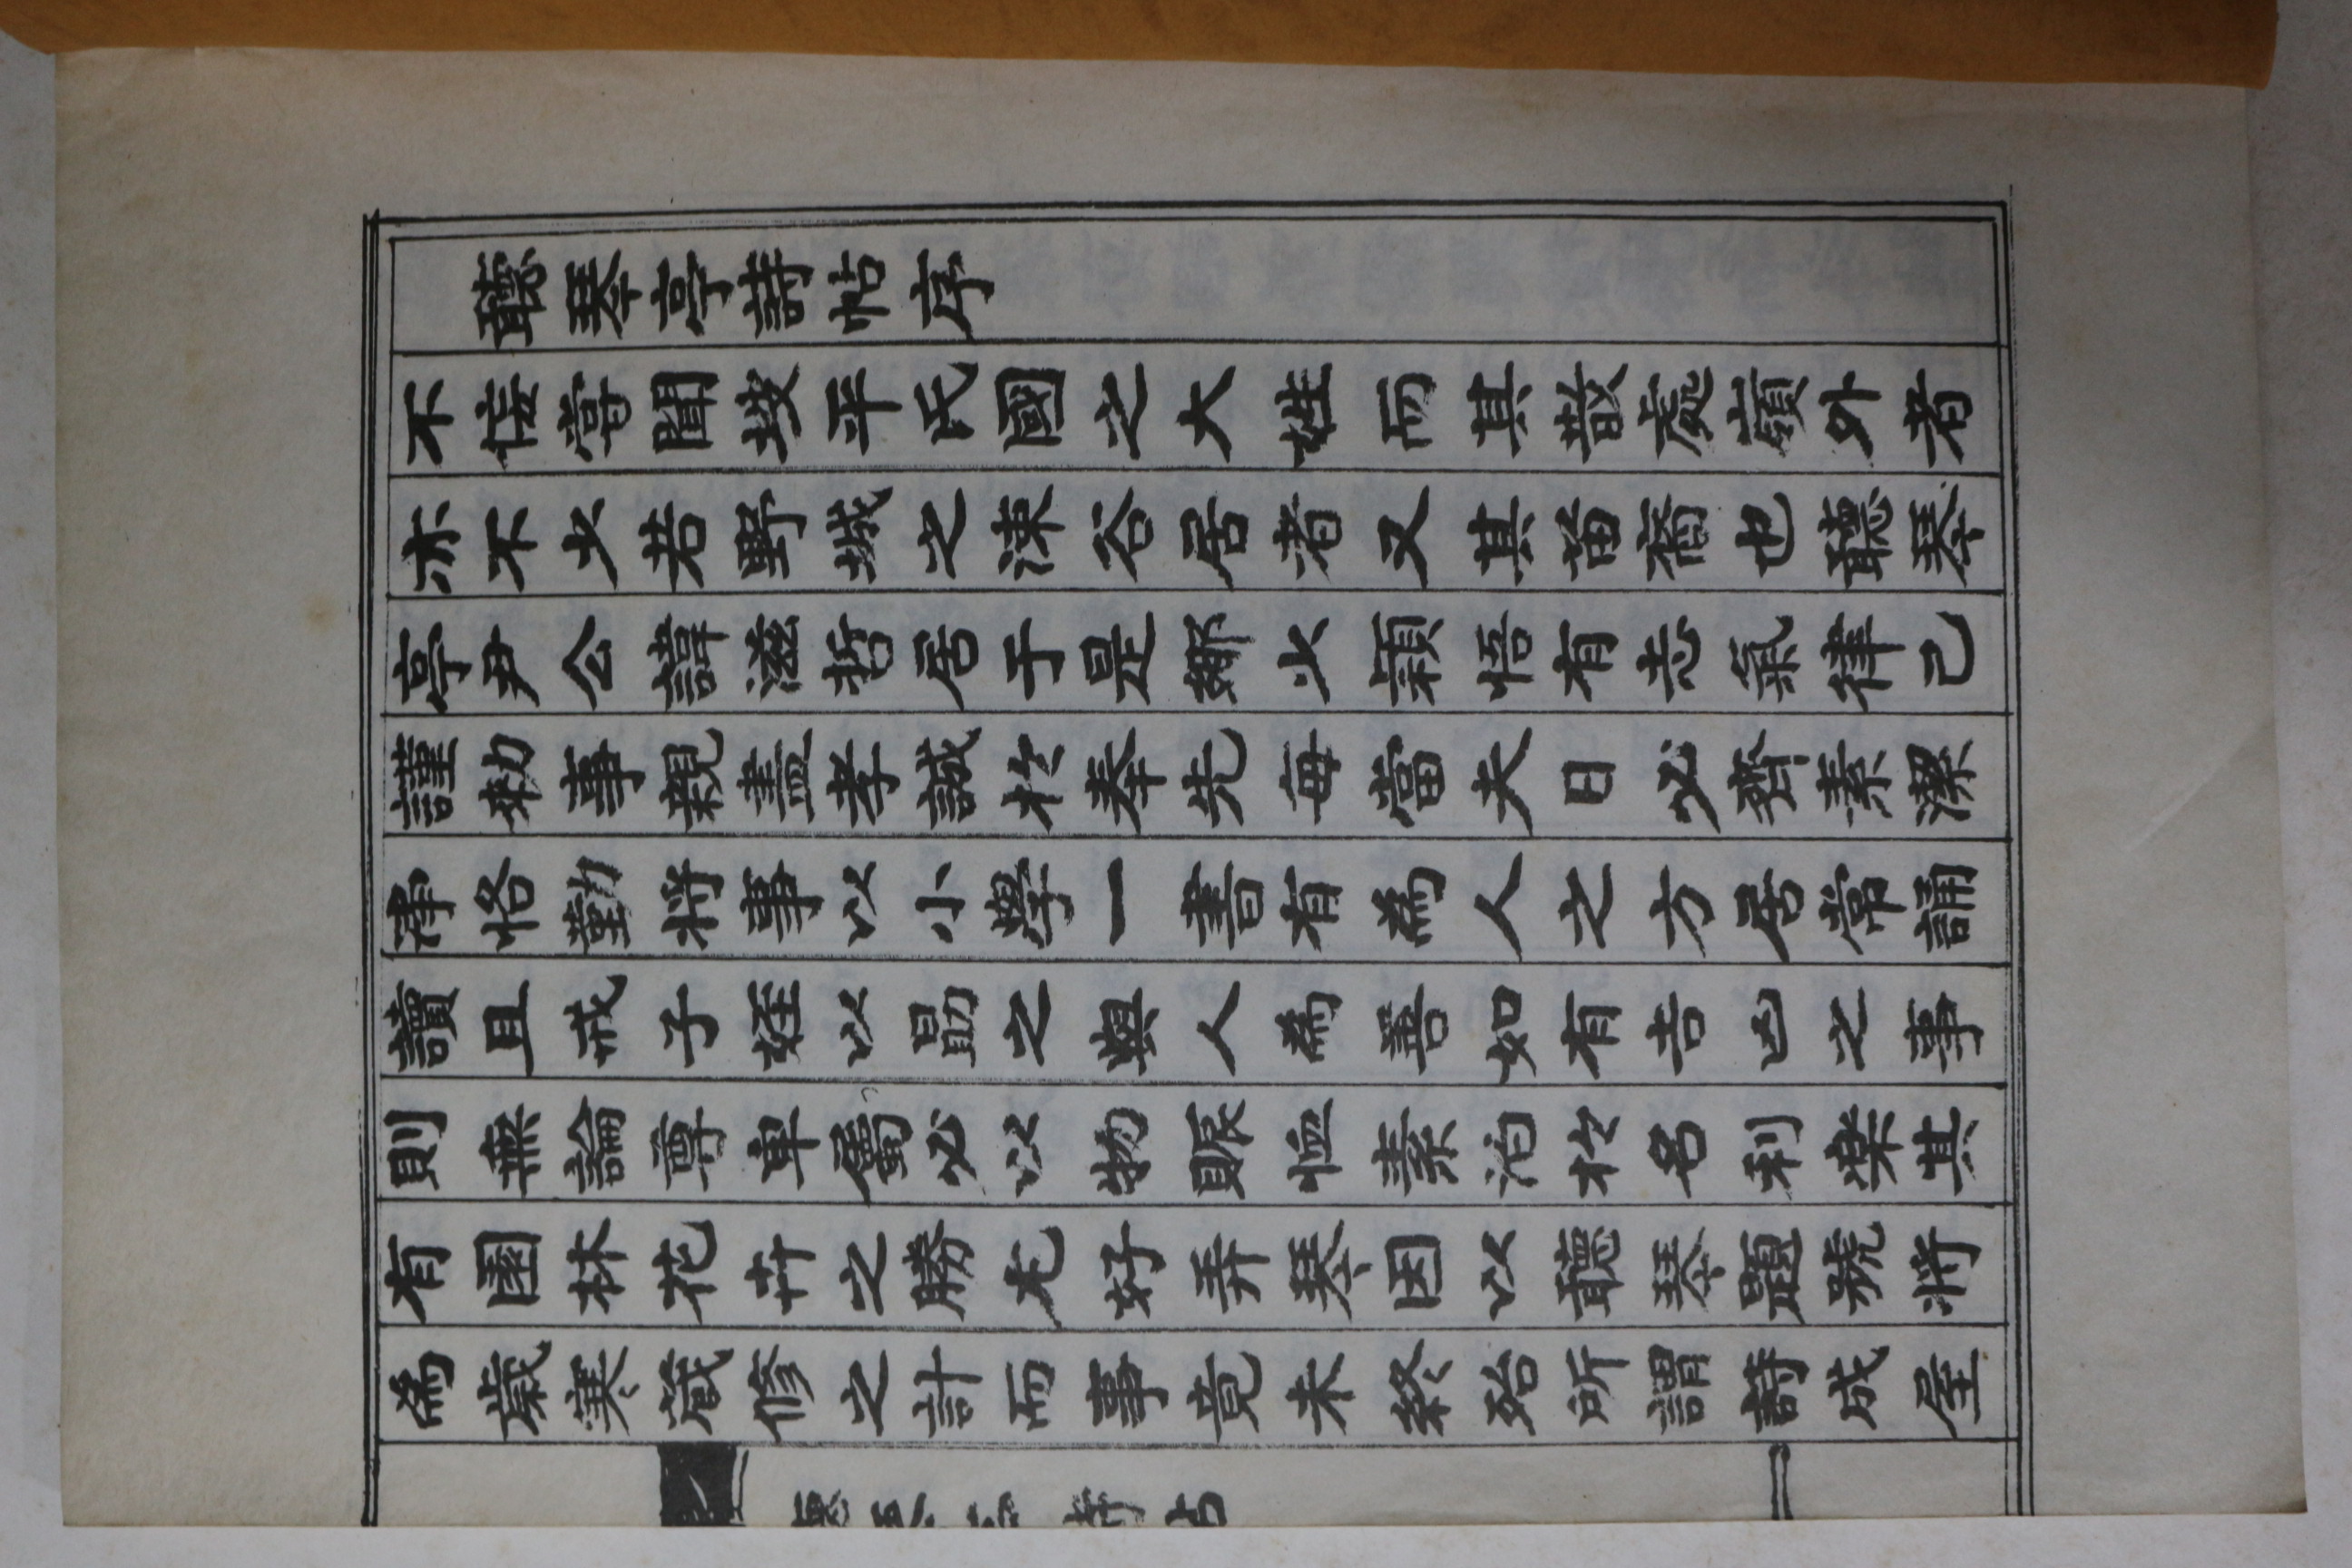 聽琴亭詩帖序
不佞嘗聞坡平氏國之大姓而其散處嶺外者
亦不少若野城之涷谷居者又其苗裔也聽琴
亭尹公諱滋哲居于是鄕少穎悟有志氣律己
謹勑事親盡孝誠於奉先每當夫日必齊素潔
淨恪勤將事以小學一書有爲人之方居常誦
讀且戒子姪以勖之與人爲善如有吉凶之事
則無論尊卑屬必以物賑恤素泊於名利樂其
有園林花卉之勝尤好弄琴因以聽琴題號將
爲歲寒藏修之計而事竟未終殆所謂詩成屋
聽琴亭詩帖